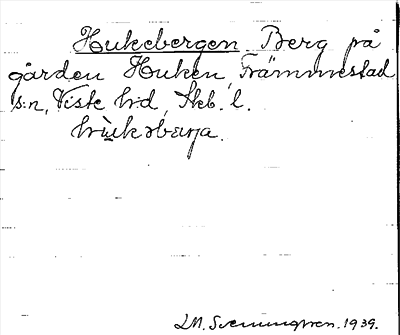 Hukebergen. Berg på
gården Huken, Främmestad
s:n, Viste hd, Skb. l.
L.M. Svenungsson. 1939.